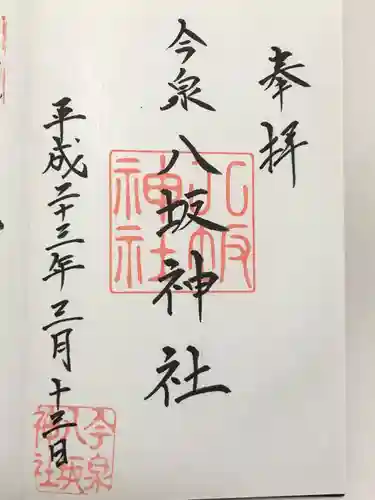 奉拝
今泉八坂神社
八坂
神社
平成二十三年三月十三日
今泉
八坂
神社